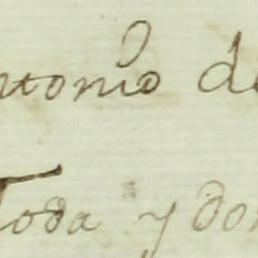 ntonio de
Toda y don